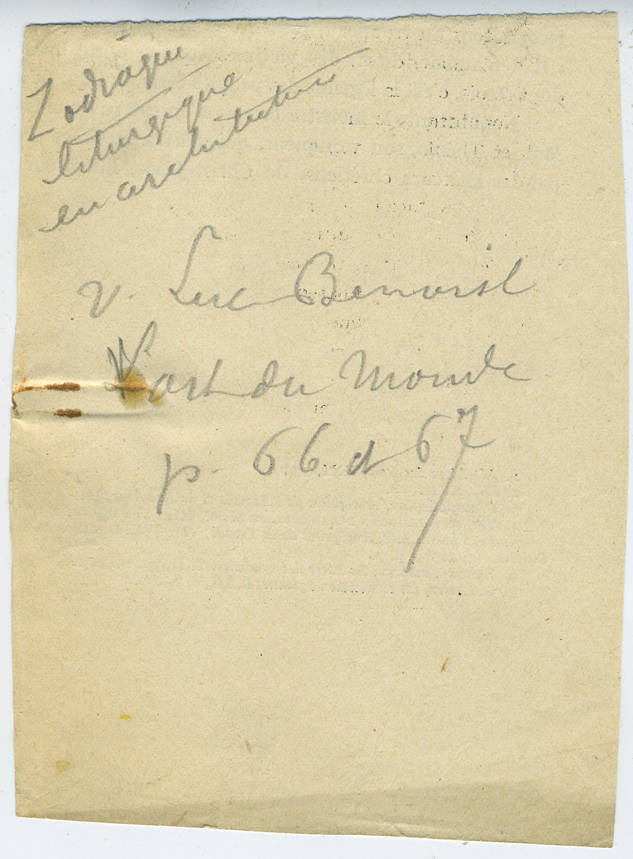 Zodiaque
liturgique
en architecture
v. Luc Benoist
L'art du Monde
p. 66 et 67